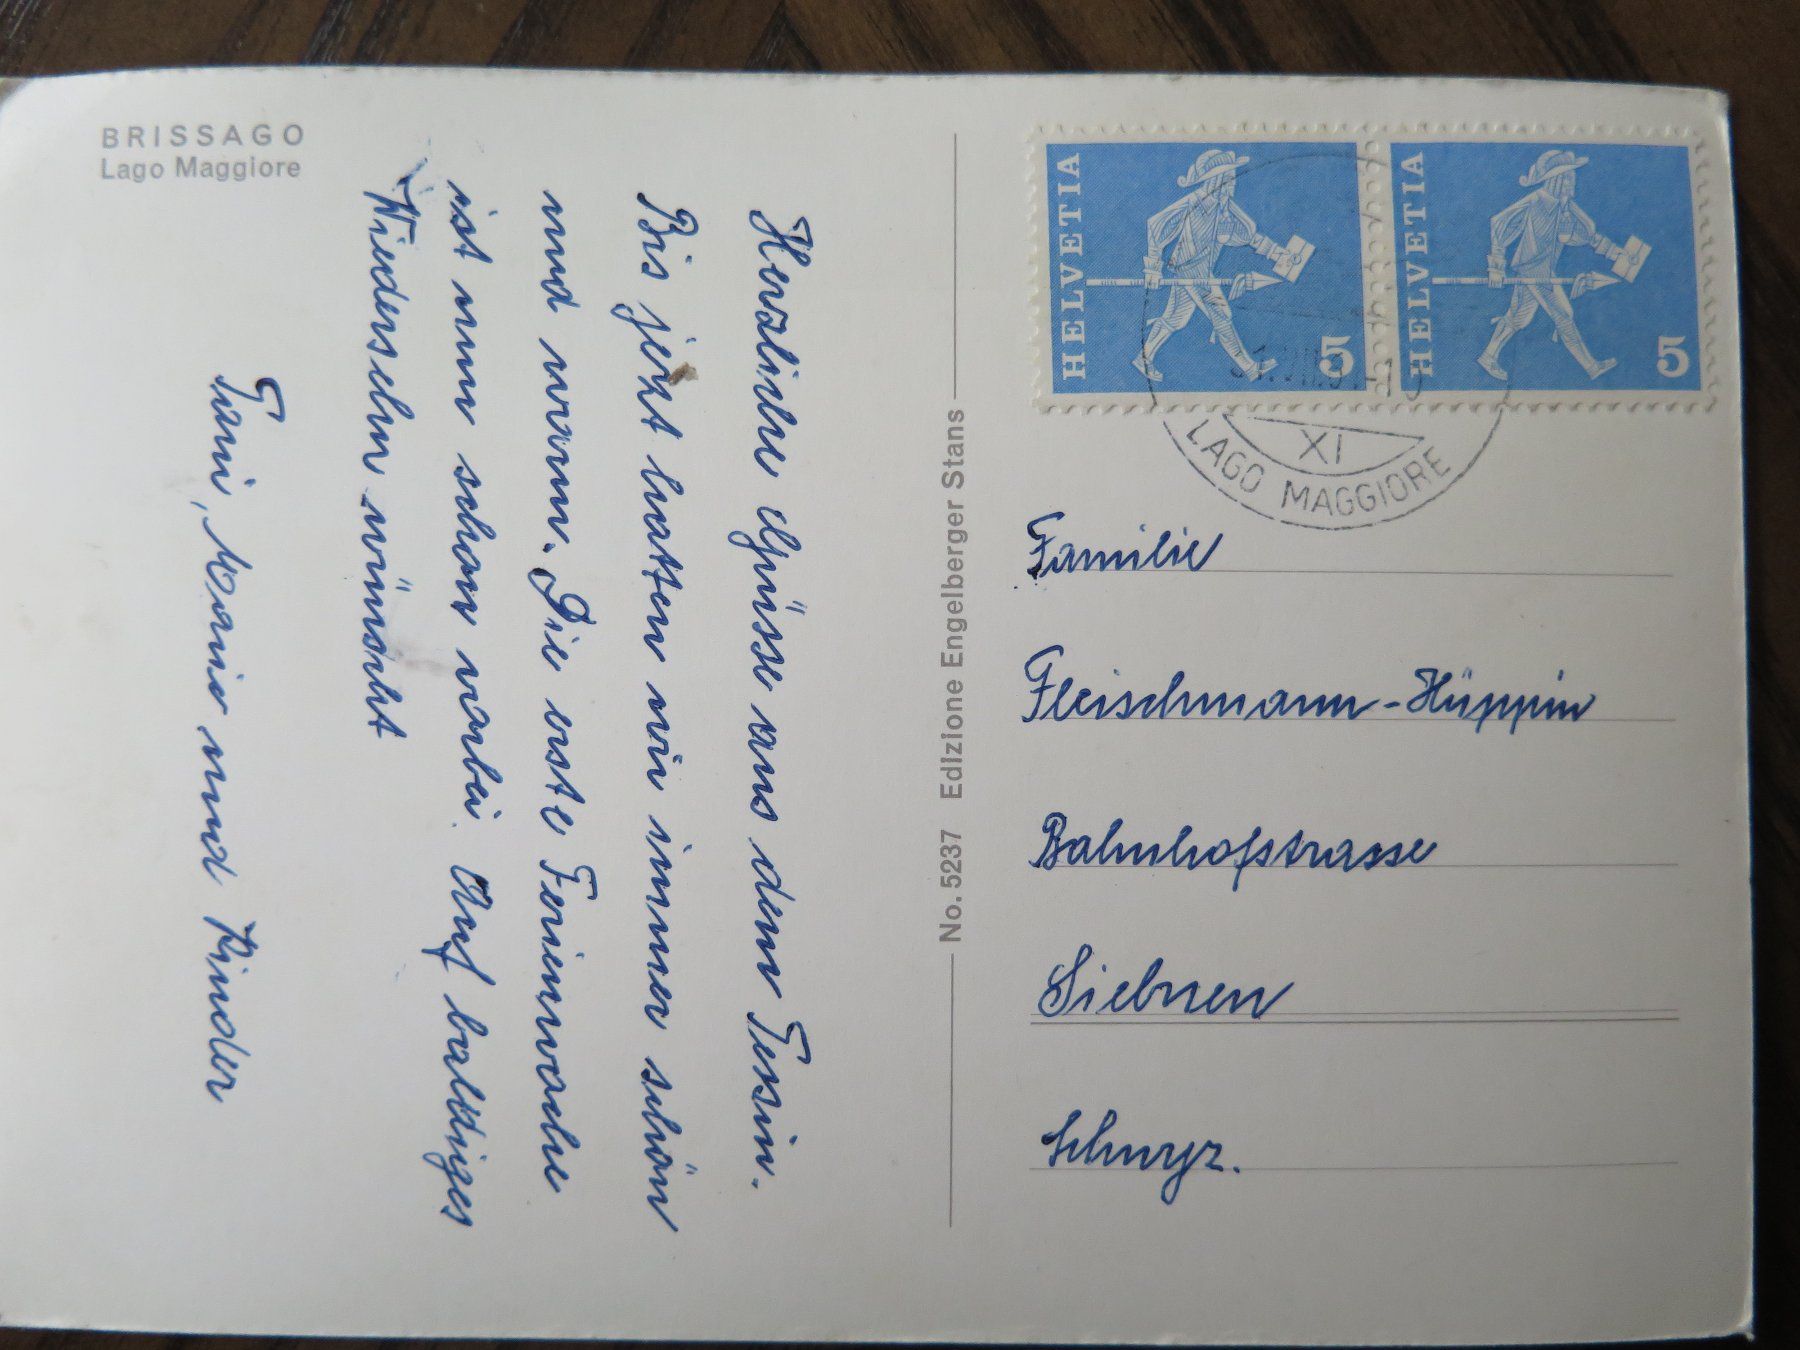 BRISSAGO
Lago Maggiore
Herzliche Grüsse aus dem Tessin.
Bis jetzt hatten wir immer schön
und warm. Die erste Ferienwoche
ist nun schon vorbei. Auf baldiges
Wiedersehn wünscht
Fam. Mario und Kinder
No. 5237 Edizione Engelberger Stans
HELVETIA 5
HELVETIA 5
XI
LAGO MAGGIORE
Familie
Fleischmann-Hüppin
Bahnhofstrasse
Siebnen
Schwyz.